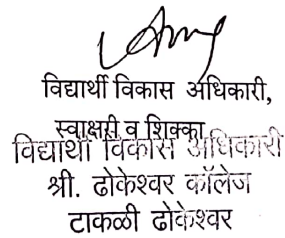 विद्यार्थी विकास अधिकारी,
स्वाक्षरी व शिक्का
विद्यार्थी विकास अधिकारी
श्री. ढोकेश्वर कॉलेज
टाकळी ढोकेश्वर